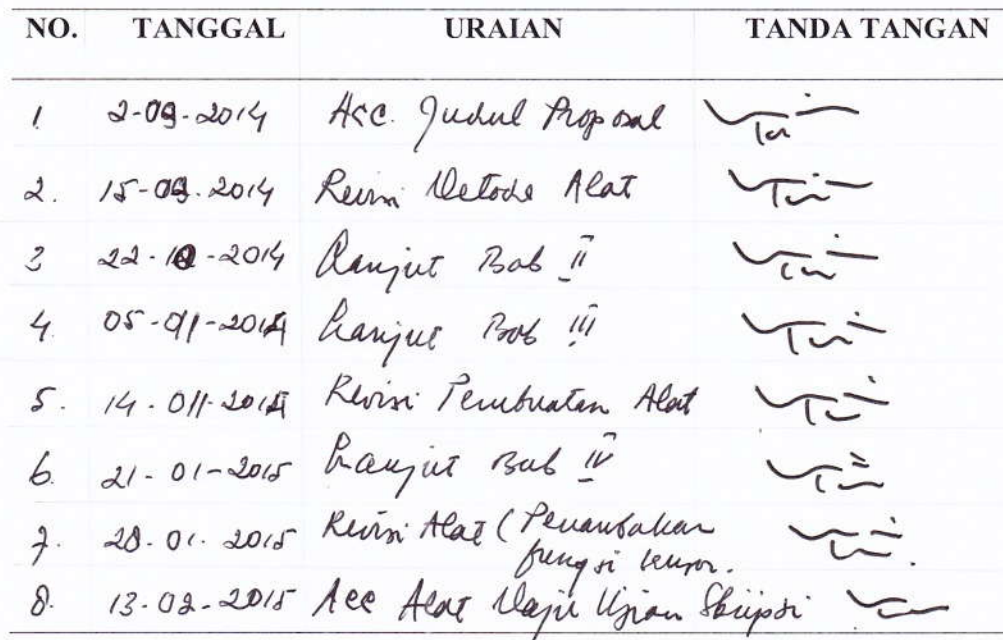 NO. TANGGAL URAIAN TANDA TANGAN
1. 2-09-2014 Acc. Judul Proposal
2. 15-09-2014 Revisi Metode Alat
3 22-10-2014 Lanjut Bab II
4. 05-11-2014 Lanjut Bab III
5. 14-11-2014 Revisi Pembuatan Alat
6. 21-01-2015 Lanjut Bab IV
7. 28-01-2015 Revisi Alat (Penambahan
fungsi sensor.
8. 13-02-2015 Acc Alat Maju Ujian Skripsi